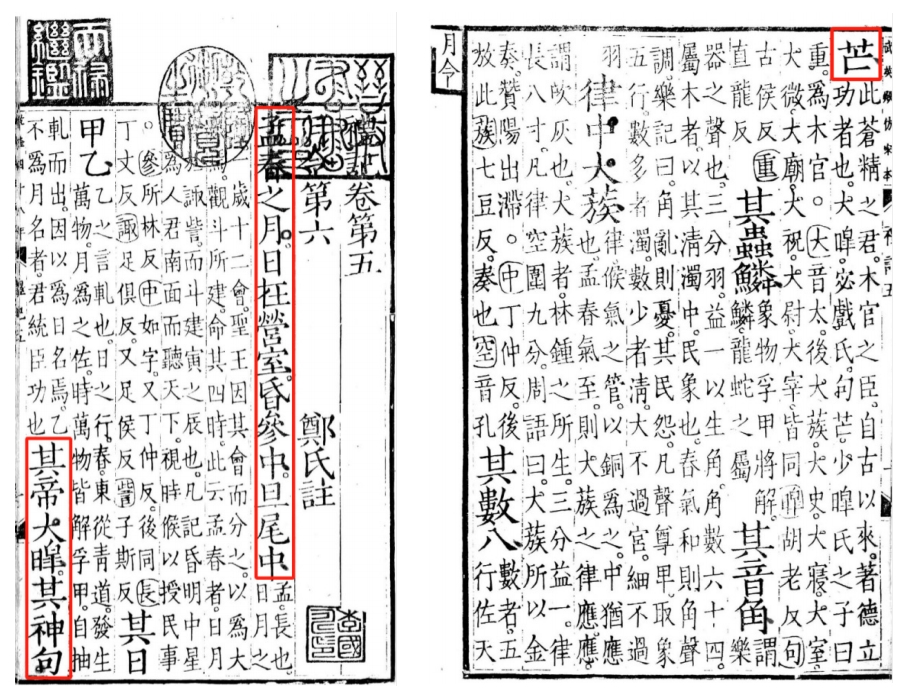 天祿繼鑑
禮記卷第五
月令第六 鄭氏註
孟春之月。日在營室。昏參中。旦尾中。孟。長也。日月之
行。一歲十二會。聖王因其會而分之。以爲大
觀斗所建。命其四時。此云孟春者。日月
諏訾。而斗建寅之辰也。凡記昏明中星
爲人君南面而聽天下。視時候以授民事
。參所林反。中如字。又丁仲反。後同。長
丁丈反。諏足俱反。又足侯反。訾子斯反 其日
甲乙 乙之言軋也。日之行。春。東從青道。發生
萬物。月爲之佐。時萬物皆解孚甲。自抽
軋而出。因以爲日名焉。乙
不爲月名者。君統臣功也 其帝大皥。其神句
月令
芒 此蒼精之君。木官之臣。自古以來。著德立
功者也。大皥。宓戲氏。句芒。少皥氏之子曰
重。爲木官。。大音太。後大族。大史。大寢。大室。
大微。大廟。大祝。大尉。大宰。皆同。皥胡老反。句
古侯反。重
直龍反 其蟲鱗 象物孚甲將解。
鱗。龍蛇之屬 其音角 謂樂
器之聲也。三分羽益一以生角。角數六十四。
屬木者。以其清濁中。民象也。春氣和則角聲
調。樂記曰。角亂則憂。其民怨。凡聲尊卑取象
五行。數多者濁。數少者清。大不過宮。細不過
羽 律中大族 律候氣之管。以銅爲之。中猶應
也。孟春氣至。則大族之律應。應
謂吹灰也。大族者。林鍾之所生。三分益一。律
長八寸。凡律空圍九分。周語曰。大族所以金
奏贊陽出滯。。中丁仲反。後
放此。族七豆反。奏也。空音孔 其數八 數者。五
行佐天